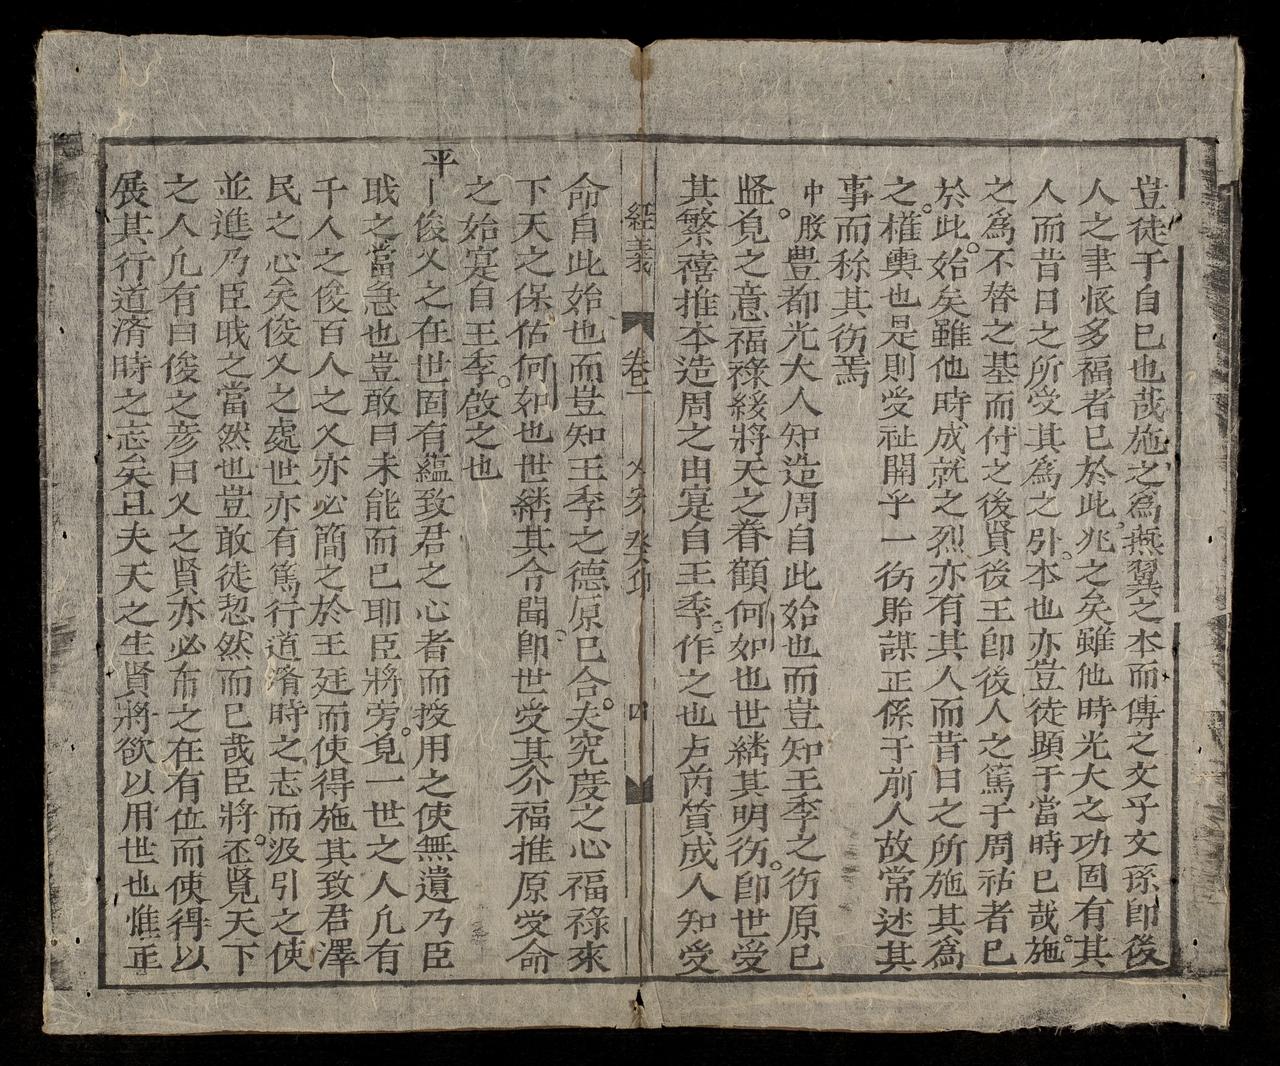 豈徒于自已也哉施之為燕翼之本而傳之文乎文孫即後
人之聿懷多福者已於此兆之矣雖他時光大之功固有其
人而昔日之所受其為之引本也亦豈徒顕于當時已哉施
之為不替之基而付之後賢後王即後人之篤于周祜者已
於此始矣雖他時成就之烈亦有其人而昔日之所施其為
之權輿也是則受祉開乎一㣔貽謀正係于前人故常述其
事而称其㣔焉
中股豊都光大人知造周自此始也而豈知王季之㣔原已
監見之意福祿綏將天之眷顧何如也世綉其明㣔即世受
其繁禧推本造周之由寔自王季作之也占芮質成人知受
經義 卷二 乂安癸卯 四
命自此始也而豈知王季之德原已合夫究度之心福祿來
下天之保佑何如也世綉其令聞即世受其介福推原受命
之始寔自王季啟之也
平 俊乂之在世固有蘊致君之心者而授用之使無遺乃臣
戝之當急也豈敢曰未能而已耶臣將旁見一世之人凡有
千人之俊百人之乂亦必簡之於王廷而使得施其致君澤
民之心矣俊乂之處世亦有篤行道濟時之志而汲引之使
並進乃臣戝之當然也豈敢徒恝然而已哉臣將丕覽天下
之人凡有曰俊之彦曰乂之賢亦必布之在有位而使得以
展其行道济時之志矣且夫天之生賢將欲以用世也惟正